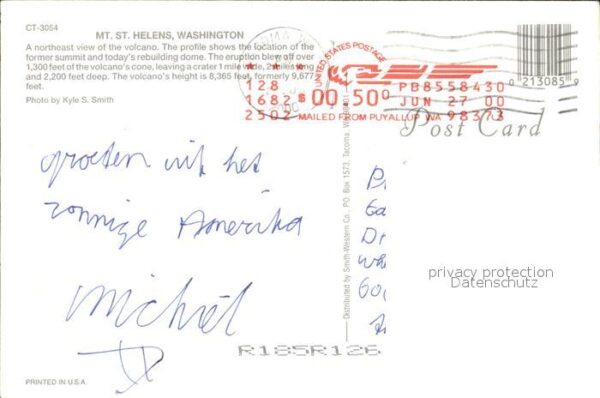 CT-3054
MT. ST. HELENS, WASHINGTON
A northeast view of the volcano. The profile shows the location of the
former summit and today's rebuilding dome. The eruption blew off over
1,300 feet of the volcano's cone, leaving a crater 1 mile wide, 2 miles long
and 2,200 feet deep. The volcano's height is 8,365 feet, formerly 9,677
feet.
Photo by Kyle S. Smith
UNITED STATES POSTAGE
128
1682
2502
$00.50
PB8558430
JUN 27 00
MAILED FROM PUYALLUP WA 98373
0 213085 9
Post Card
groeten uit het
zonnige Amerika
Michiel
Distributed by Smith-Western Co., PO. Box 1573, Tacoma, WA 98401
privacy protection
Datenschutz
R185R126
PRINTED IN U.S.A.